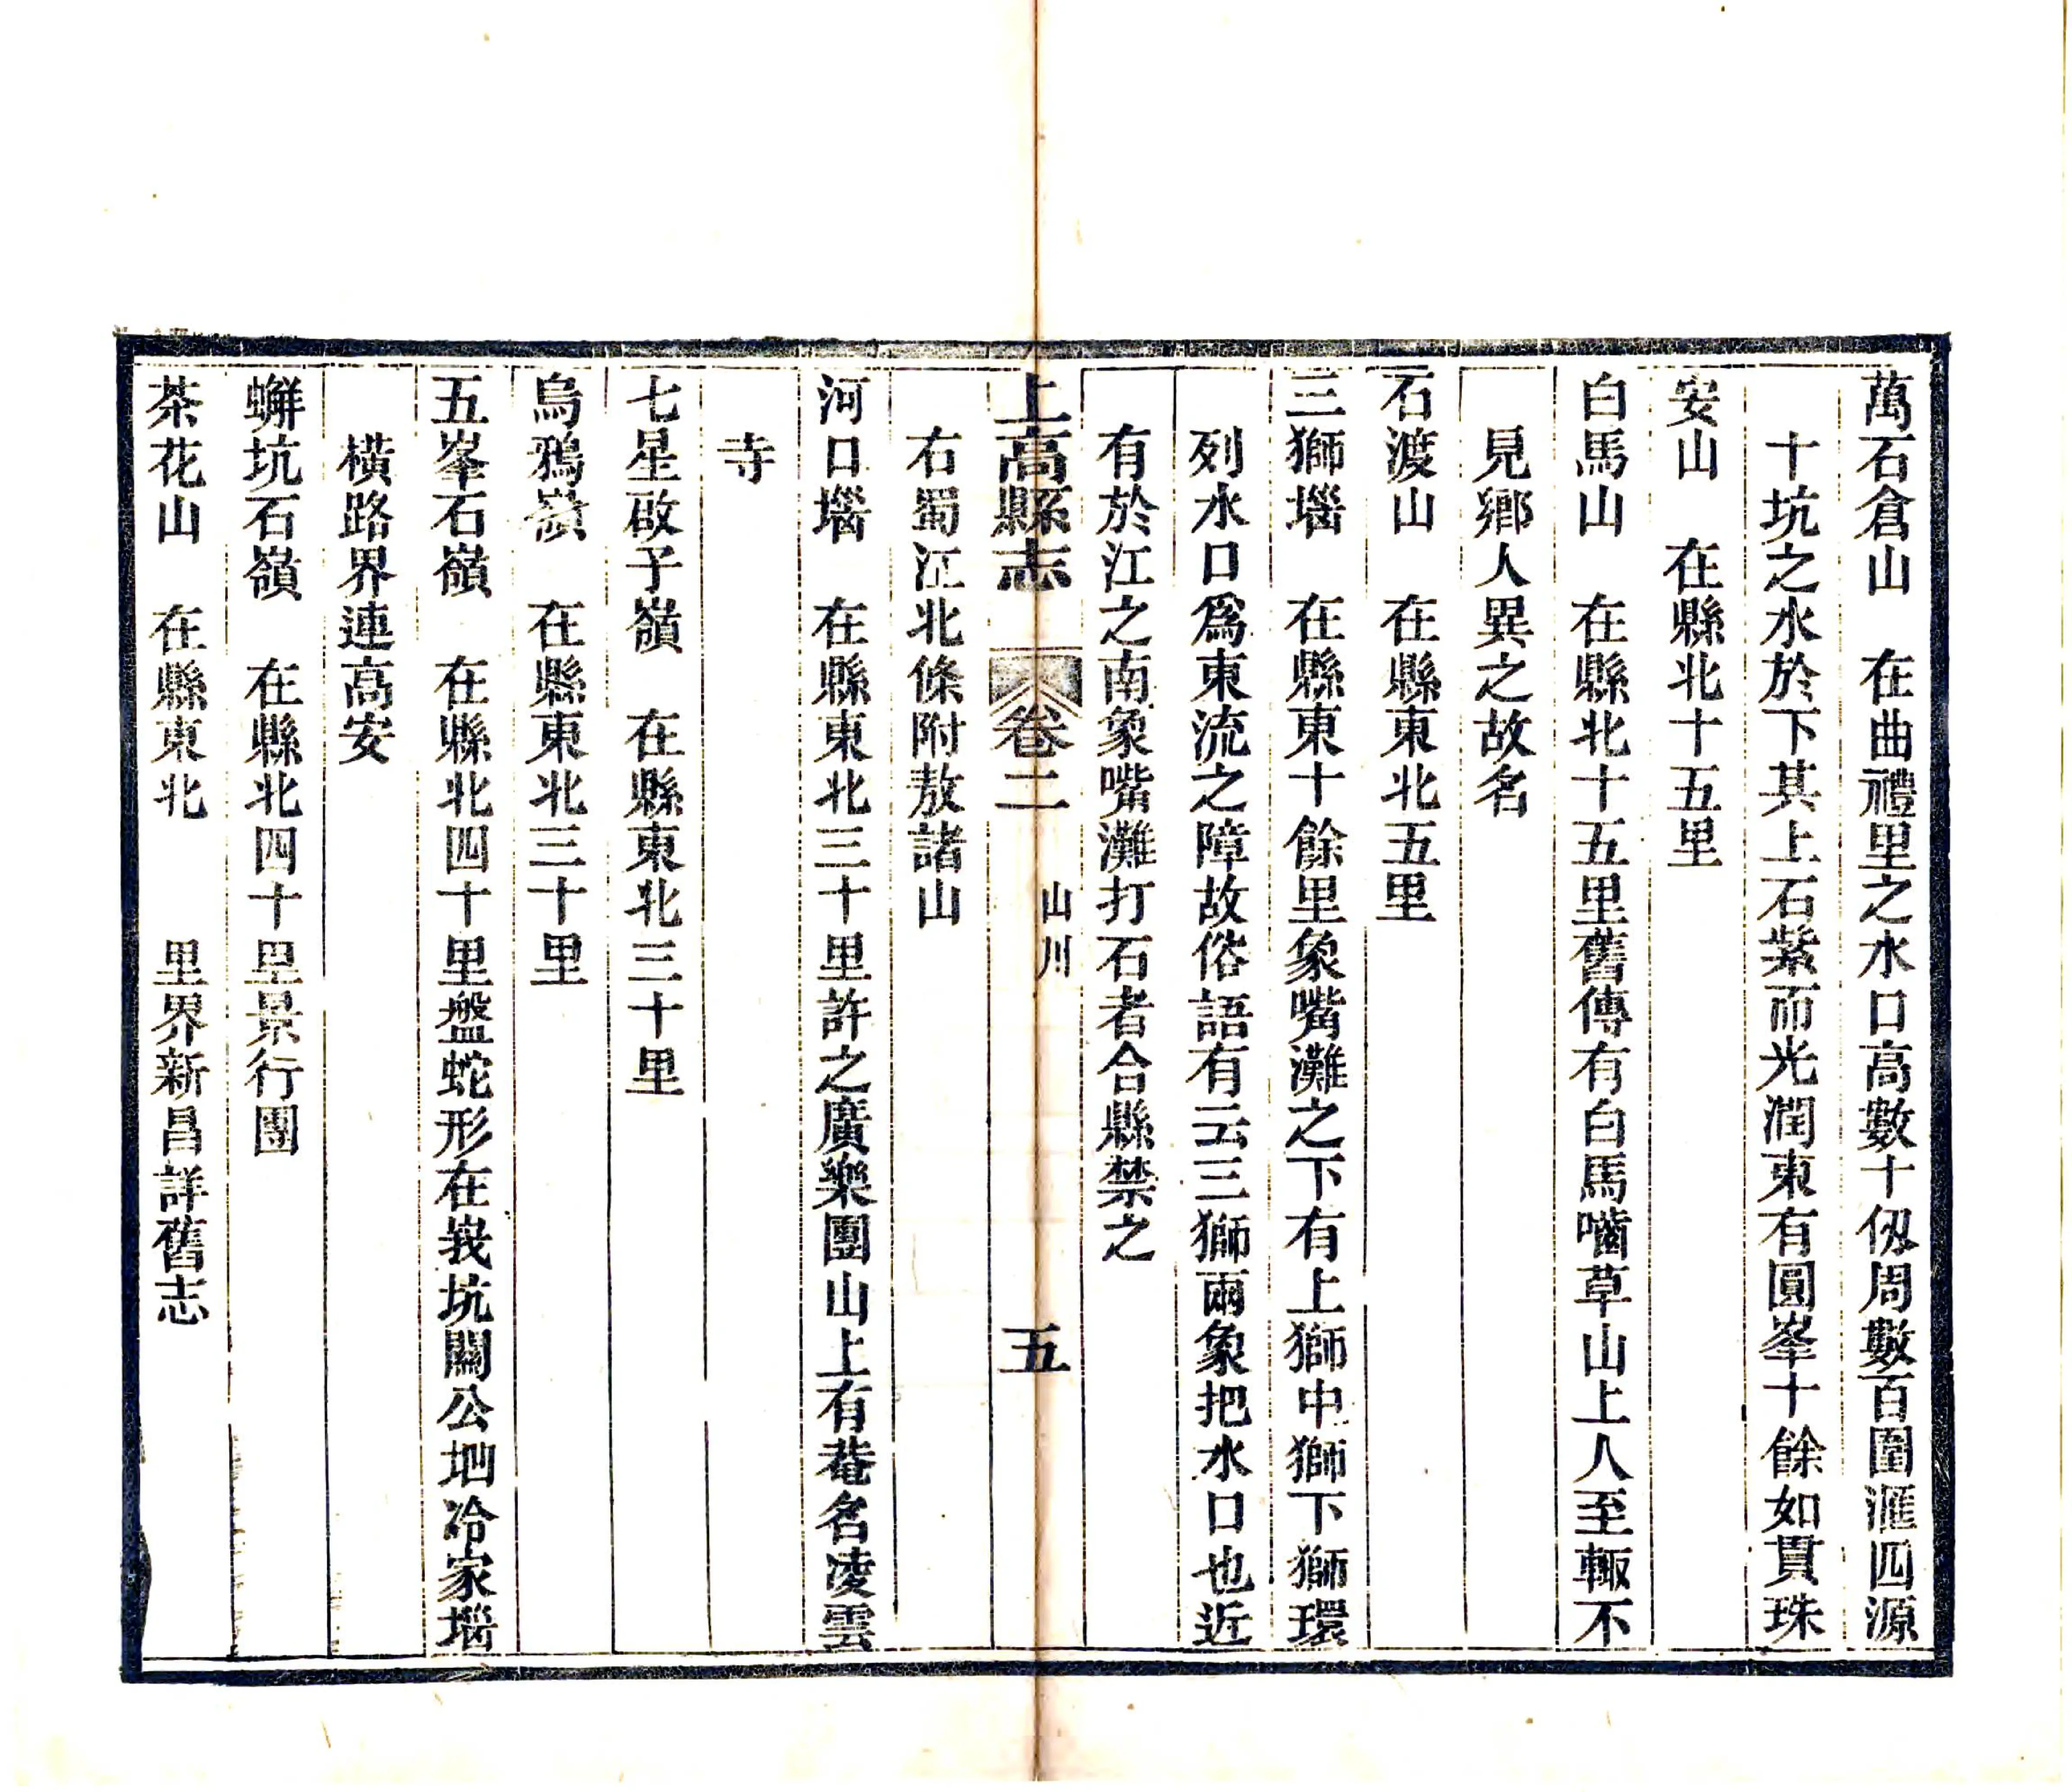 萬石倉山　在曲禮里之水口高數十仭周數百圍滙四源
十坑之水於下其上石紫而光潤東有圓峯十餘如貫珠
安山　在縣北十五里
白馬山　在縣北十五里舊傳有白馬嚙草山上人至輙不
見鄉人異之故名
石渡山　在縣東北五里
三獅堖　在縣東十餘里象嘴灘之下有上獅中獅下獅環
列水口爲東流之障故俗語有云三獅兩象把水口也近
有於江之南象嘴灘打石者合縣禁之
上高縣志　卷二　山川　五
右蜀江北條附敖諸山
河口堖　在縣東北三十里許之廣樂團山上有菴名凌雲
寺
七星啟子嶺　在縣東北三十里
烏鴉嶺　在縣東北三十里
五峯石嶺　在縣北四十里盤蛇形在峩坑關公坳冷家堖
橫路界連高安
蠏坑石嶺　在縣北四十里景行團
茶花山　在縣東北　　里界新昌詳舊志